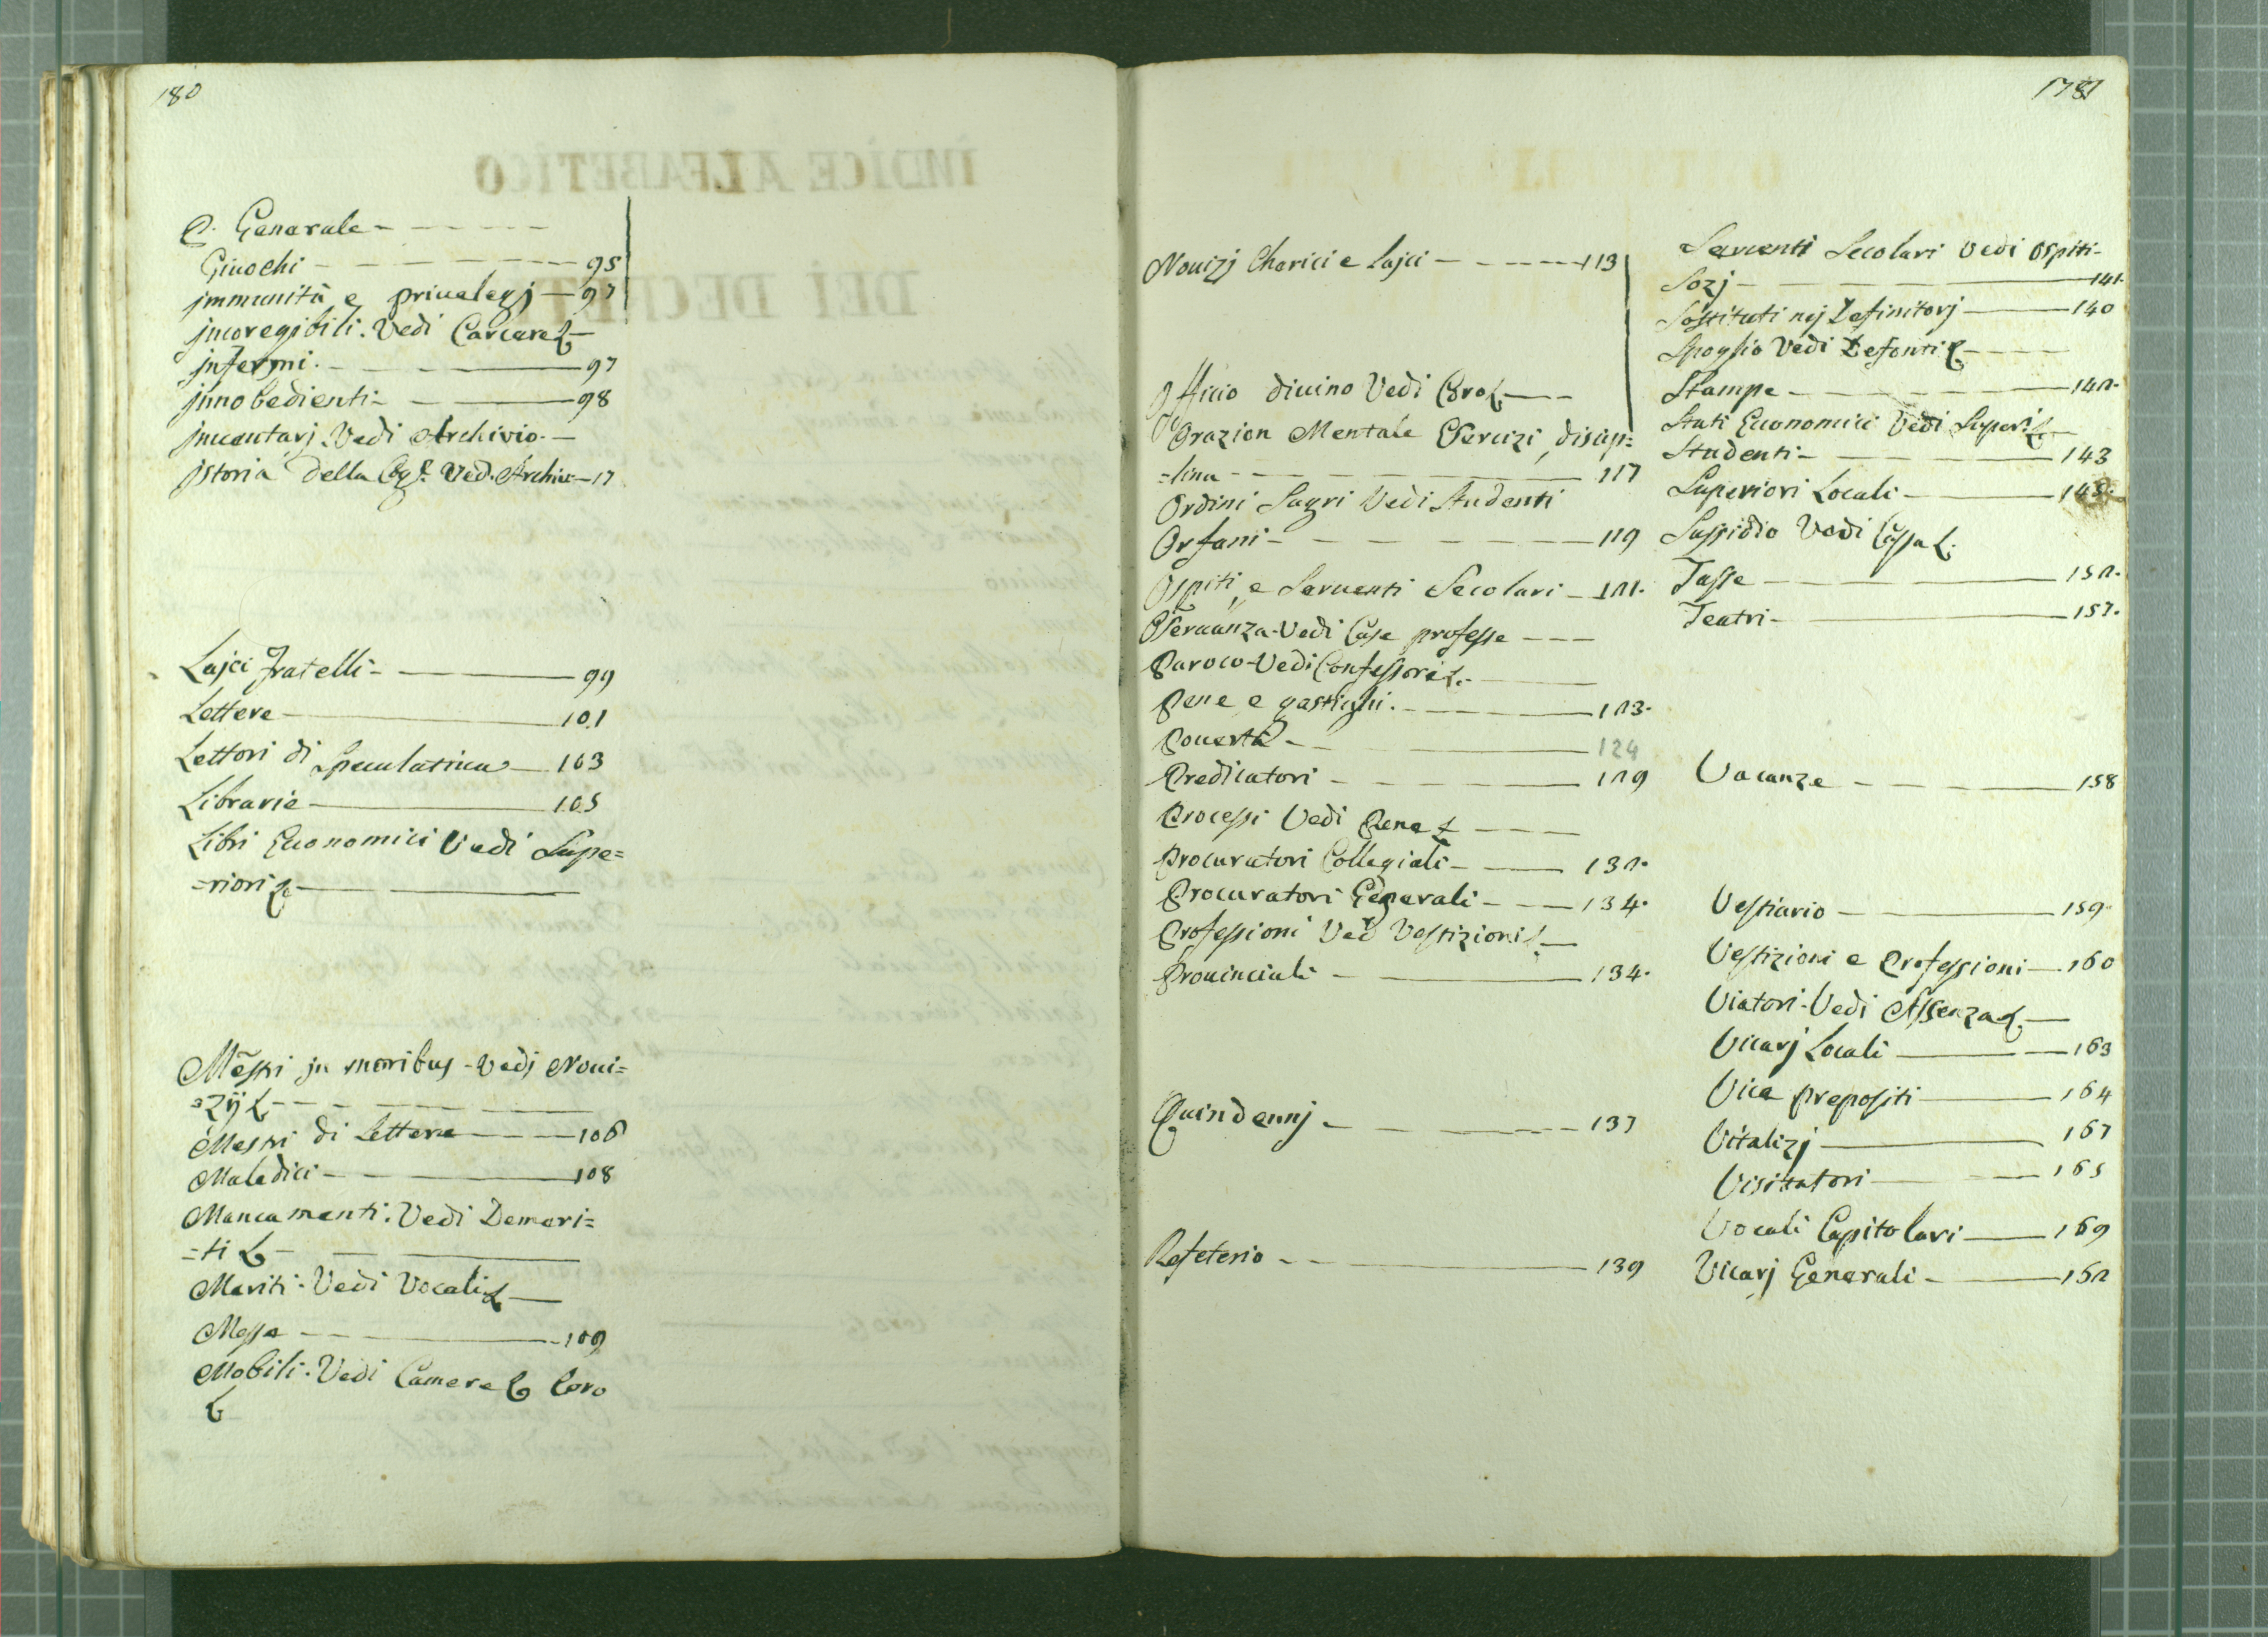 180
P. Generale - - - - -
Giuochi - - - - - 95
jmmunità e priuelegj - 97
jncoregibili. Vedi Carcere &
jnfermi. - - - - 97
jnnobedienti - - - 98
jnuentarj. Vedi Archivio. -
jstoria della Cgē. Ved. Archiue - 17
Lajci Fratelli - - - 99
Lettere - 101
Lettori di Speculatiua - 103
Librarie - 105
Libri Economici Vedi Supe=
=riori & - -
Mēstri jn moribus - Vedi Noui=
=zij & - - - -
Mestri di Lettere - - - 106
Maledici - - 108
Mancamenti. Vedi Demeri=
=ti & - - -
Meriti - Vedi Vocali & -
Messe - - - 109
Mobili. Vedi Camere & Coro
&
1781
Nouizj Cherici e Lajci - - - - 113
Officio diuino Vedi Coro & - - -
Orazion Mentale Esercizi, discip=
=lina - - - - 117
Ordini Sagri Vedi Studenti
Orfani - - - - - 119
Ospiti, e Seruenti Secolari - 121.
Oseruanza - Vedi Case professe - - -
Paroco - Vedi Confessori &. -
Pene e gastighi. - - - 123.
Pouertà - - 124
Predicatori - - - - 129
Processi Vedi Pene & - - -
Procuratori Collegiali - - 132.
Procuratori Generali - - - 134.
Professioni Ved Vestizioni & -
Prouinciali - - 134.
Quindennj - - - - - 137
Refeterio - - - 139
Seruenti Secolari Vedi Ospiti -
Sozj - - - 141.
Sostituti nej Definitorj - 140
Spoglio Vedi Defonti & - - -
Stampe - - - - 142.
Stati Economici Vedi Superi &. -
Studenti - - - - 143
Superiori Locali - - 145.
Sussidio Vedi Cassa &.
Tasse - - - 152.
Teatri - - 157.
Vacanze - - - - 158
Vestiario - - 159.
Vestizioni e Professioni - 160
Viatori - Vedi Assenza &. -
Vicarj Locali - - 163
Vice prepositi - 164
Vitalizj - 167
Visitatori - - 165
Vocali Capitolari - 169
Vicarj Generali - - 162